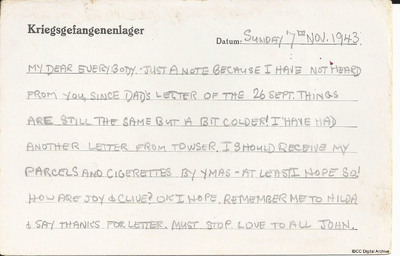 Kriegsgefangenenlager
Datum: SUNDAY 7TH NOV. 1943.
MY DEAR EVERYBODY. JUST A NOTE BECAUSE I HAVE NOT HEARD
FROM YOU SINCE DAD'S LETTER OF THE 26 SEPT. THINGS
ARE STILL THE SAME BUT A BIT COLDER! I HAVE HAD
ANOTHER LETTER FROM TOWSER. I SHOULD RECEIVE MY
PARCELS AND CIGERETTES BY XMAS - AT LEAST I HOPE SO!
HOW ARE JOY & CLIVE? OK I HOPE. REMEMBER ME TO HILDA
& SAY THANKS FOR LETTER. MUST STOP. LOVE TO ALL JOHN.
IBCC Digital Archive